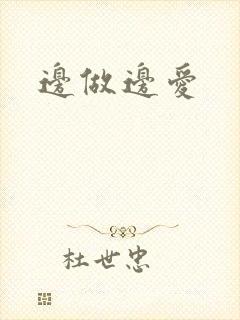 邊做邊愛
杜世忠